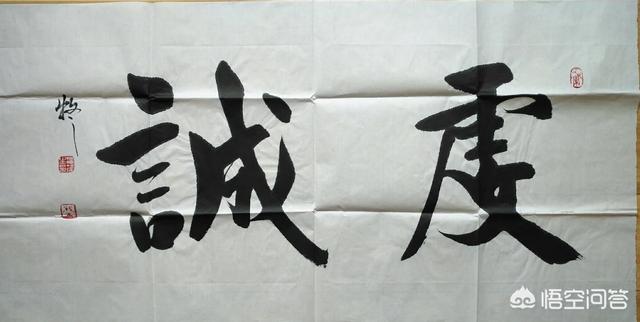 虔誠
悟空问答